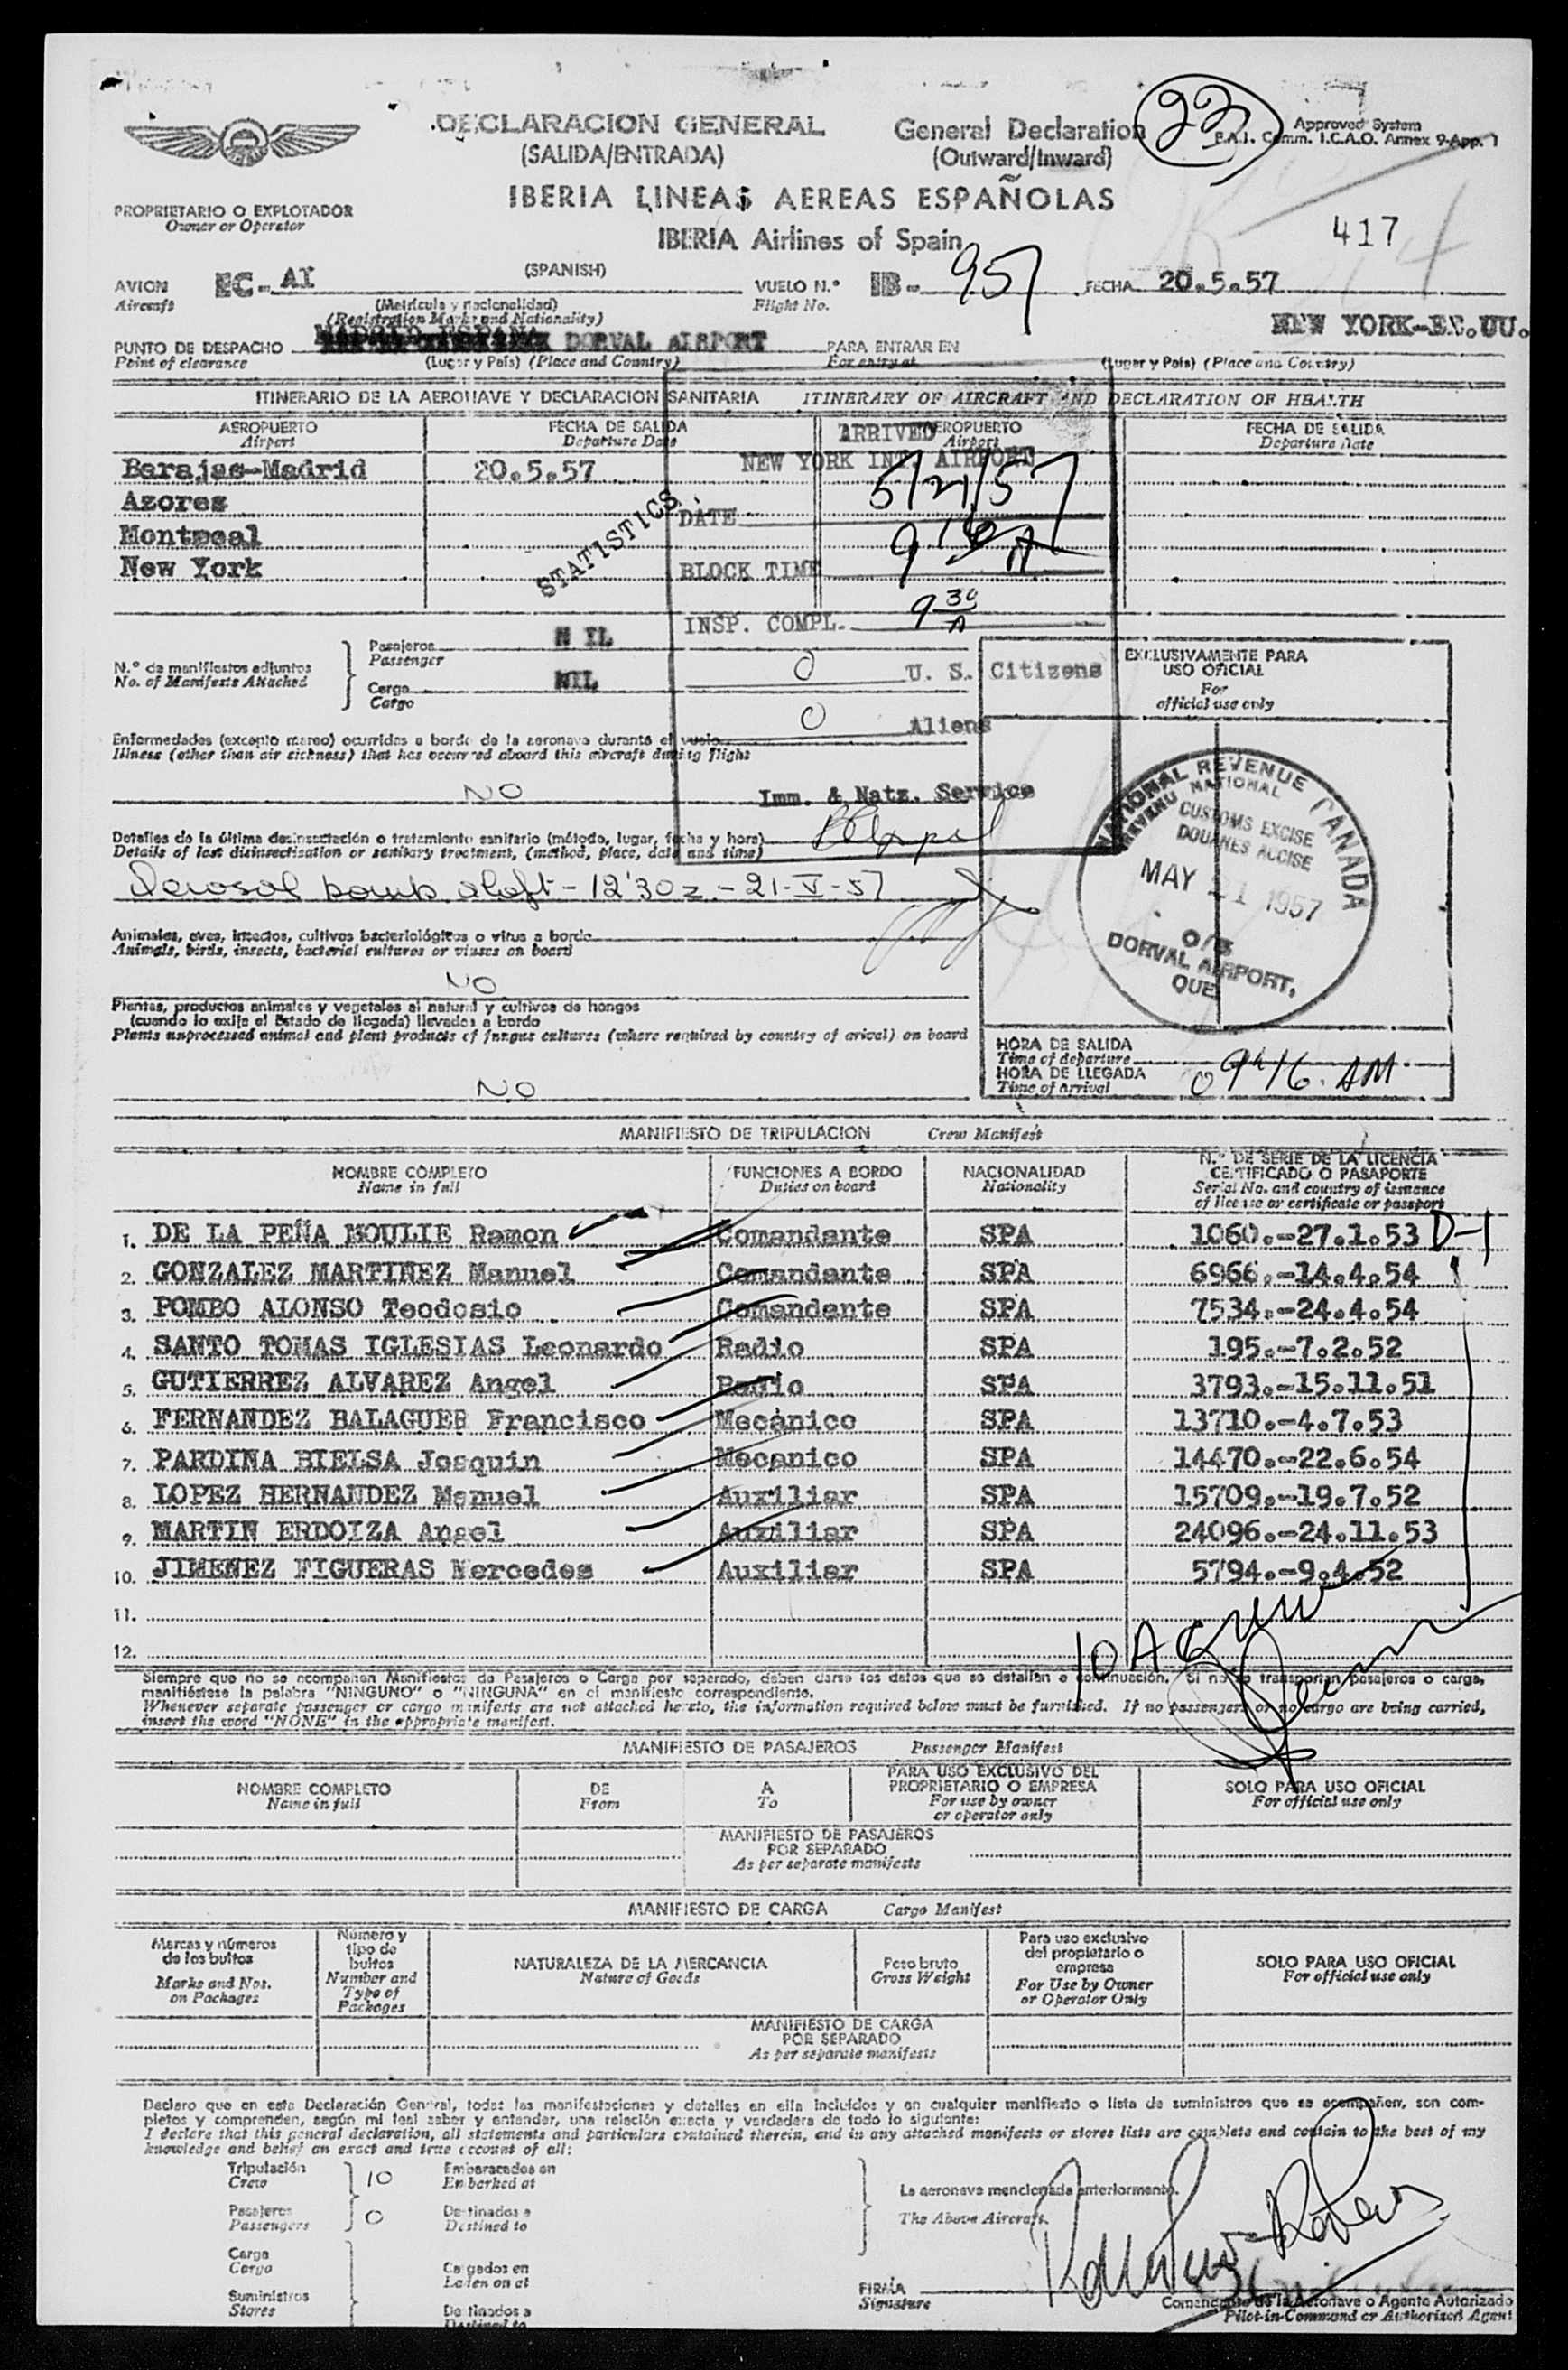 DECLARACION GENERAL
(SALIDA/ENTRADA)
General Declaration
(Outward/Inward)
22
Approved System
F.A.I. Comm. I.C.A.O. Annex 9-App. 1
IBERIA LINEAS AEREAS ESPAÑOLAS
IBERIA Airlines of Spain
PROPRIETARIO O EXPLOTADOR
Owner or Operator
417
AVION EC-AI (SPANISH) VUELO N.º IB- 957 FECHA 20.5.57
Aircraft (Metrícula y nacionalidad) Flight No.
(Registration Marks and Nationality)
MADRID ESPAÑA
NEW YORK-EE.UU.
PUNTO DE DESPACHO DORVAL AIRPORT PARA ENTRAR EN
Point of clearance (Lugar y País) (Place and Country) For entry at (Lugar y País) (Place and Country)
ITINERARIO DE LA AERONAVE Y DECLARACION SANITARIA ITINERARY OF AIRCRAFT AND DECLARATION OF HEALTH
AEROPUERTO FECHA DE SALIDA AEROPUERTO FECHA DE SALIDA
Airport Departure Date Airport Departure Date
Barajas-Madrid 20.5.57
Azores
Montreal
New York
STATISTICS
ARRIVED
NEW YORK INT. AIRPORT
DATE 5/21/57
BLOCK TIME 9 16 A
INSP. COMPL. 9 30 A
0 U. S. Citizens
0 Aliens
Imm. & Natz. Service
N.º de manifiestos adjuntos
No. of Manifests Attached
Pasajeros N IL
Passenger
Carga NIL
Cargo
EXCLUSIVAMENTE PARA
USO OFICIAL
For
official use only
Enfermedades (excepto mareo) ocurridas a bordo de la aeronave durante el vuelo
Illness (other than air sickness) that has occurred aboard this aircraft during flight
NO
Detalles de la última desinsectación o tratamiento sanitario (método, lugar, fecha y hora)
Details of last disinsectisation or sanitary treatment, (method, place, date and time)
Aerosol bomb aloft - 12'30 z - 21-V-57
NATIONAL REVENUE CANADA
REVENU NATIONAL
CUSTOMS EXCISE
DOUANES ACCISE
MAY 21 1957
DORVAL AIRPORT,
QUE
Animales, aves, insectos, cultivos bacteriológicos o virus a bordo
Animals, birds, insects, bacterial cultures or viuses on board
NO
Plantas, productos animales y vegetales al natural y cultivos de hongos
(cuando lo exija el Estado de llegada) llevados a bordo
Plants unprocessed animal and plant products of fungus cultures (where required by country of arival) on board
NO
HORA DE SALIDA
Time of departure
HORA DE LLEGADA
Time of arrival
9h 16. AM
MANIFIESTO DE TRIPULACION Crew Manifest
NOMBRE COMPLETO FUNCIONES A BORDO NACIONALIDAD N.º DE SERIE DE LA LICENCIA
CERTIFICADO O PASAPORTE
Name in full Duties on board Nationality Serial No. and country of issuance
of license or certificate or passport
1. DE LA PEÑA MOULIE Ramon Comandante SPA 1060.-27.1.53 D-1
2. GONZALEZ MARTINEZ Manuel Comandante SPA 6966.-14.4.54
3. POMBO ALONSO Teodosio Comandante SPA 7534.-24.4.54
4. SANTO TOMAS IGLESIAS Leonardo Radio SPA 195.-7.2.52
5. GUTIERREZ ALVAREZ Angel Radio SPA 3793.-15.11.51
6. FERNANDEZ BALAGUER Francisco Mecánico SPA 13710.-4.7.53
7. PARDINA BIELSA Joaquin Mecanico SPA 14470.-22.6.54
8. LOPEZ HERNANDEZ Manuel Auxiliar SPA 15709.-19.7.52
9. MARTIN ERDOIZA Angel Auxiliar SPA 24096.-24.11.53
10. JIMENEZ FIGUERAS Mercedes Auxiliar SPA 5794.-9.4.52
11.
12.
10 A Crew
Siempre que no se acompañen Manifiestos de Pasajeros o Carga por separado, deben darse los datos que se detallan a continuación. Si no se transportan pasajeros o carga,
manifiéstese la palabra "NINGUNO" o "NINGUNA" en el manifiesto correspondiente.
Whenever separate passenger or cargo manifests are not attached hereto, the information required below must be furnished. If no passengers or no cargo are being carried,
insert the word "NONE" in the appropriate manifest.
MANIFIESTO DE PASAJEROS Passenger Manifest
NOMBRE COMPLETO
Name in full
DE
From
A
To
PARA USO EXCLUSIVO DEL
PROPRIETARIO O EMPRESA
For use by owner
or operator only
SOLO PARA USO OFICIAL
For official use only
MANIFIESTO DE PASAJEROS
POR SEPARADO
As per separate manifests
MANIFIESTO DE CARGA Cargo Manifest
Marcas y números
de los bultos
Marks and Nos.
on Packages
Número y
tipo de
bultos
Number and
Type of
Packages
NATURALEZA DE LA MERCANCIA
Nature of Goods
Peso bruto
Gross Weight
Para uso exclusivo
del propietario o
empresa
For Use by Owner
or Operator Only
SOLO PARA USO OFICIAL
For official use only
MANIFIESTO DE CARGA
POR SEPARADO
As per separate manifests
Declaro que en esta Declaración General, todas las manifestaciones y detalles en ella incluidos y en cualquier manifiesto o lista de suministros que se acompañen, son com-
pletos y comprenden, según mi leal saber y entender, una relación exacta y verdadera de todo lo siguiente:
I declare that this general declaration, all statements and particulars contained therein, and in any attached manifests or stores lists are complete and contain to the best of my
knowledge and belief an exact and true account of all:
Tripulación 10 Embarcados en
Crew Embarked at
Pasajeros 0 Destinados a
Passengers Destined to
La aeronave mencionada anteriormente.
The Above Aircraft.
Carga Cargados en
Cargo Laden on at
Suministros Destinados a
Stores Destined to
FIRMA
Signature
Comandante de la Aeronave o Agente Autorizado
Pilot-in-Command or Authorized Agent